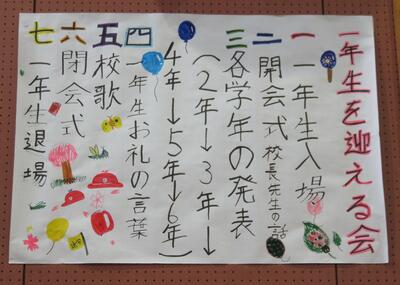 一年生を迎える会
一 一年生入場
二 開会式 校長先生の話
三 各学年の発表
(2年→3年→
4年→5年→6年)
四 一年生お礼の言葉
五 校歌
六 閉会式
七 一年生退場